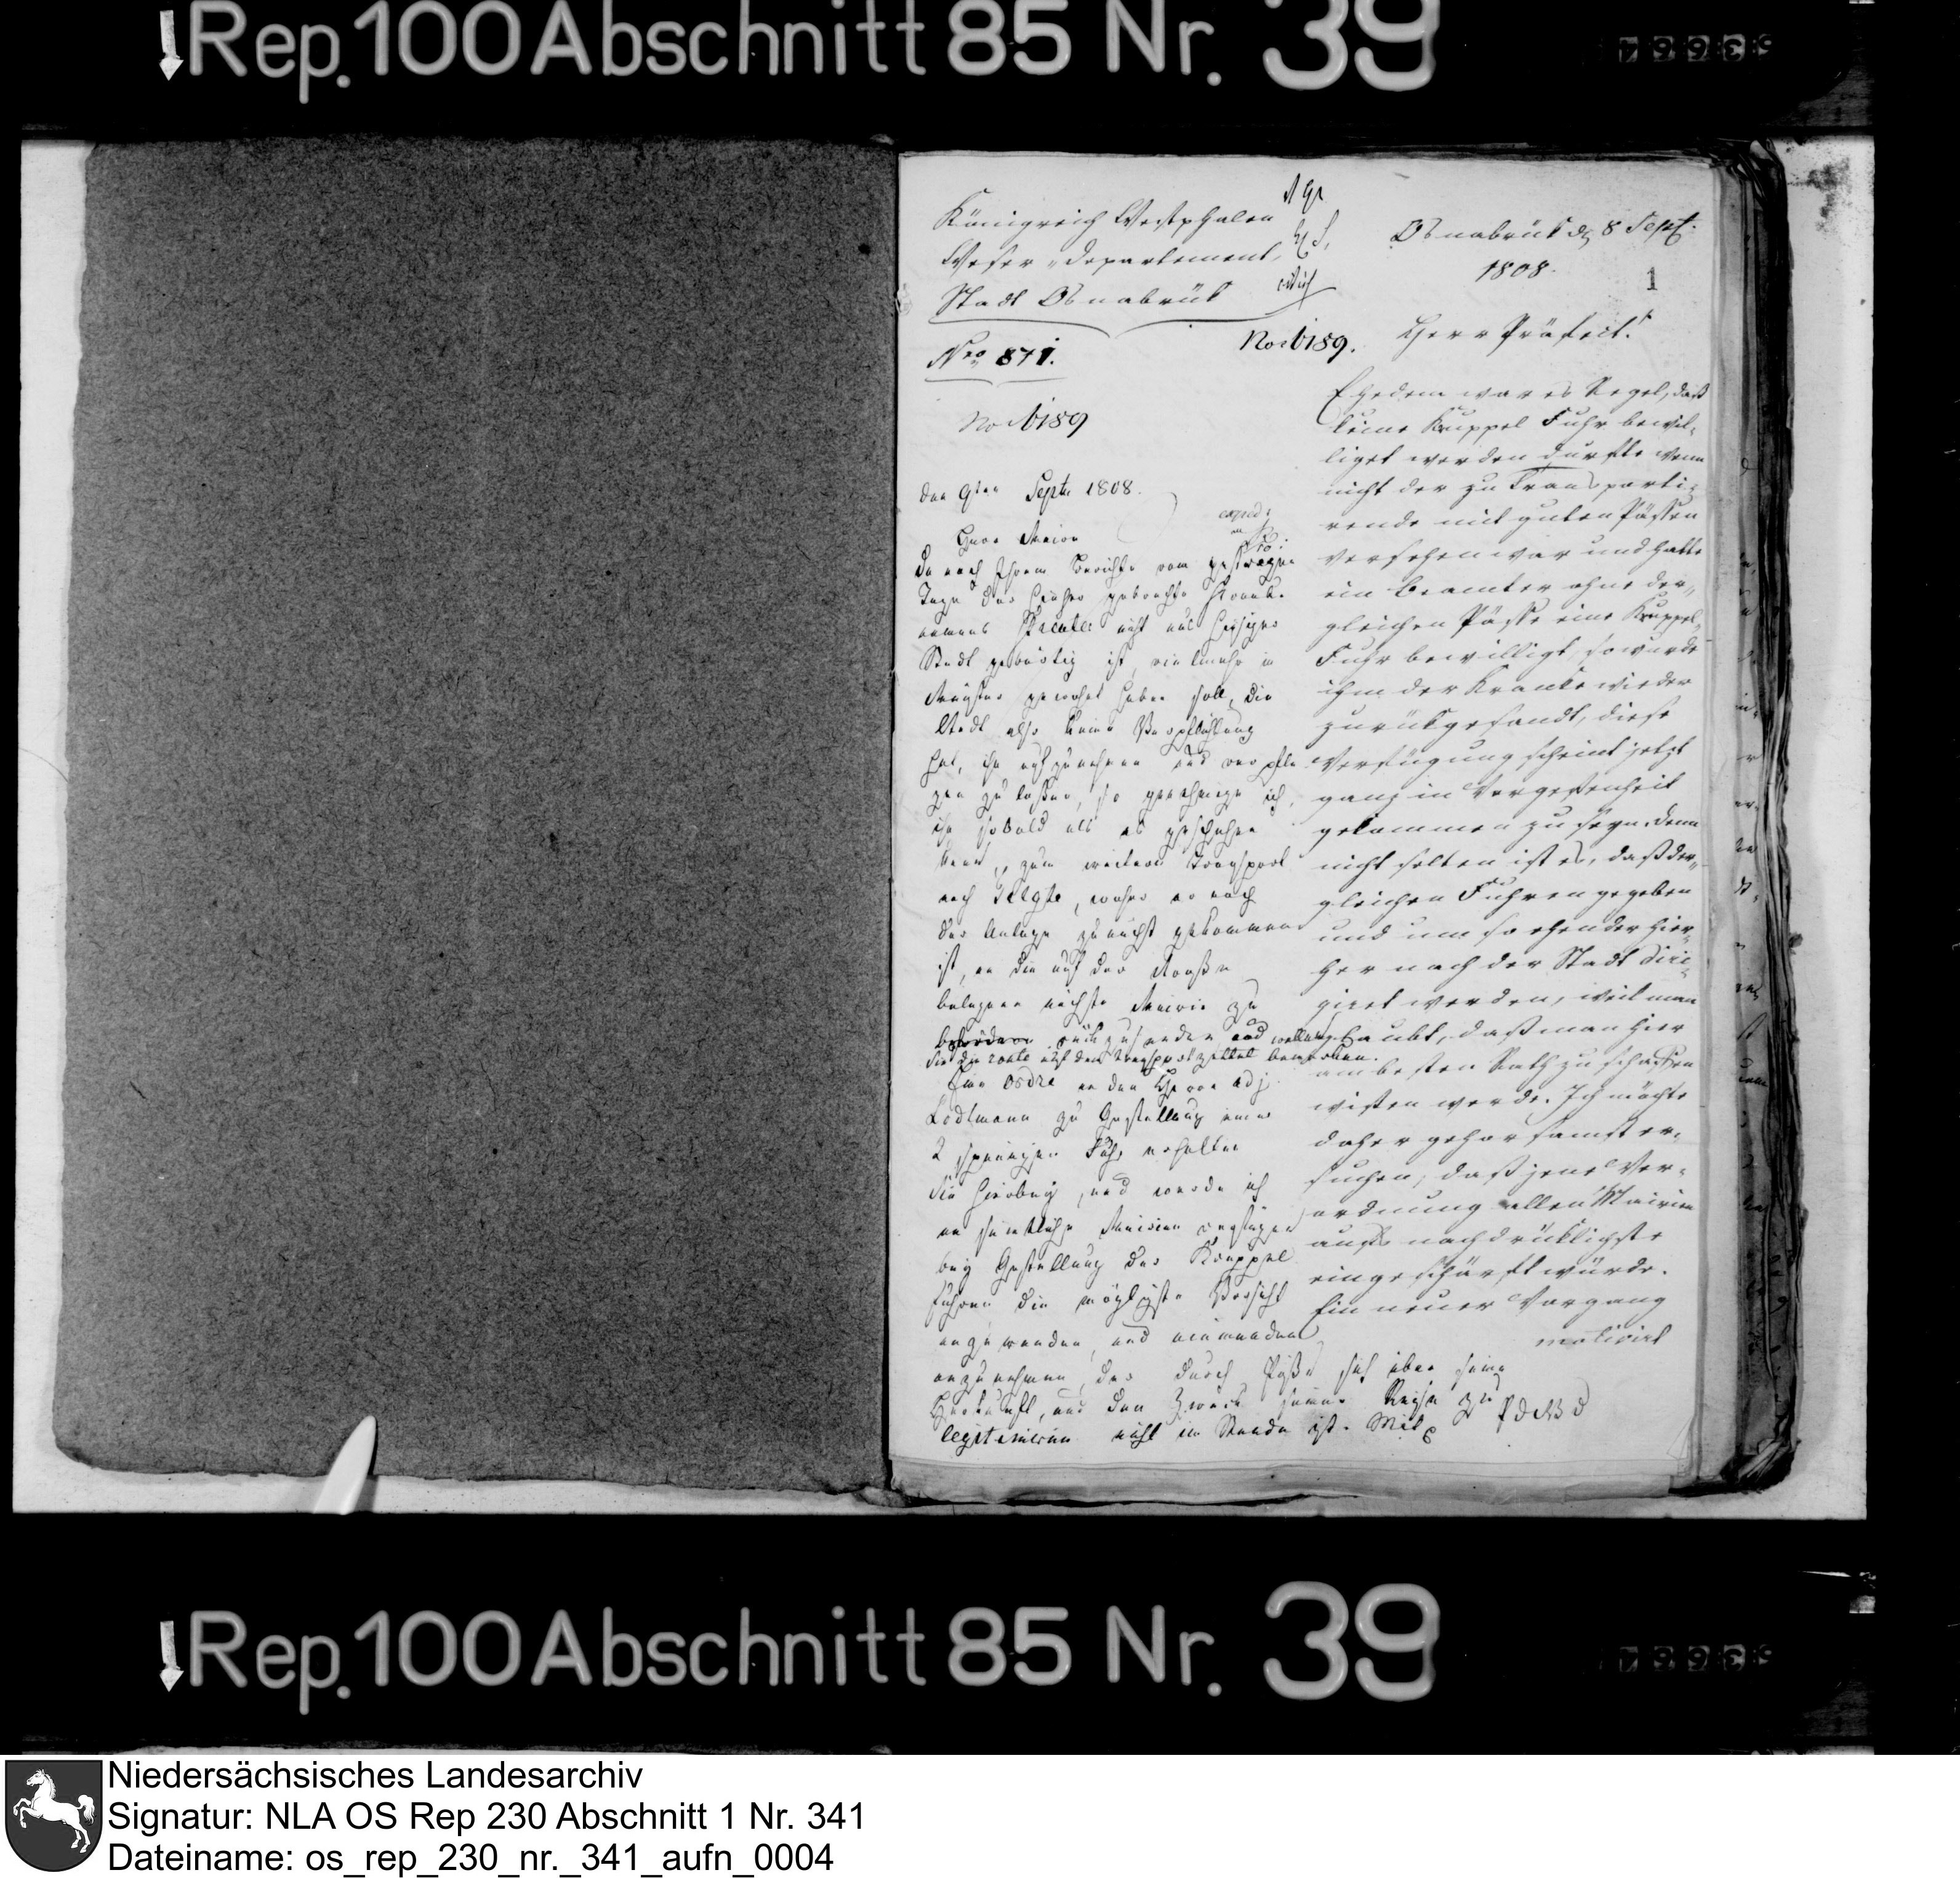 Rep. 100 Abschnitt 85 Nr. 39
Königreich Westphalen
Weser-Departement,
Stadt Osnabrük
Nro 871.
No 6189
Osnabrük d 8 Sept.
1808.
1
No 6189.
Herr Präfect!
Ehedem war es Regel, daß
keine Krüppel Fuhr bewil-
liget werden durfte wenn
nicht der zu Transporti-
rende mit guten Pässen
versehen war und hatte
ein Beamter ohne der-
gleichen Pässe eine Krüppel-
Fuhr bewilligt, so wurde
ihm der Kranke wieder
zurükgesandt, diese
Verfügung scheint jetzt
ganz in Vergessenheit
gekommen zu seyn. denn
nicht selten ist es, daß der-
gleichen Fuhren gegeben
und um so ehender hier-
her nach der Stadt diri-
giret werden, weil man
glaubt, daß man hier
am besten Rath zu schaffen
wissen werde. Ich möchte
daher gehorsamst er-
suchen, daß jene Ver-
ordnung allen Mairien
aufs nachdrüklichste
eingeschärft würde.
Ein neuer Vorgang
motivirt
den 9ten Septr 1808.
Herr Maire
Da nach Ihrem Berichte vom gestrigen
Tage der hieher gebrachte Kranke
namens nicht aus hiesiger
Stadt gebürtig ist, vielmehr in
Münster gewohnt haben soll, die
Stadt also keine Verpflichtung
hat, ihn aufzunehmen und verpfle
gen zu lassen, so genehmige ich,
ihn sobald als es geschehen
kann, zum weitern Transport
nach Telgte, woher er nach
der Anlage zunächst gekommen
ist, an die auf der Route
belegene nächste Mairie zu
zurückzusenden, und wollen
Sie die route auf dem Transportzettel bemerken.
Eine Ordre an den Herrn adj.
Lodtmann zu Gestellung einer
2 spännigen Fuhr erhalten
Sie hierbey, und werde ich
an sämtliche Mairien verfügen
bey Gestellung der Krüppel
fuhren die möglichste Vorsicht
anzuwenden, und niemanden
anzunehmen, der durch Pässe sich über seine
Herkunft, und den Zweck seiner Reise zu
legitimiren nicht im Stande ist. Mit
Rep. 100 Abschnitt 85 Nr. 39
Niedersächsisches Landesarchiv
Signatur: NLA OS Rep 230 Abschnitt 1 Nr. 341
Dateiname: os_rep_230_nr._341_aufn_0004